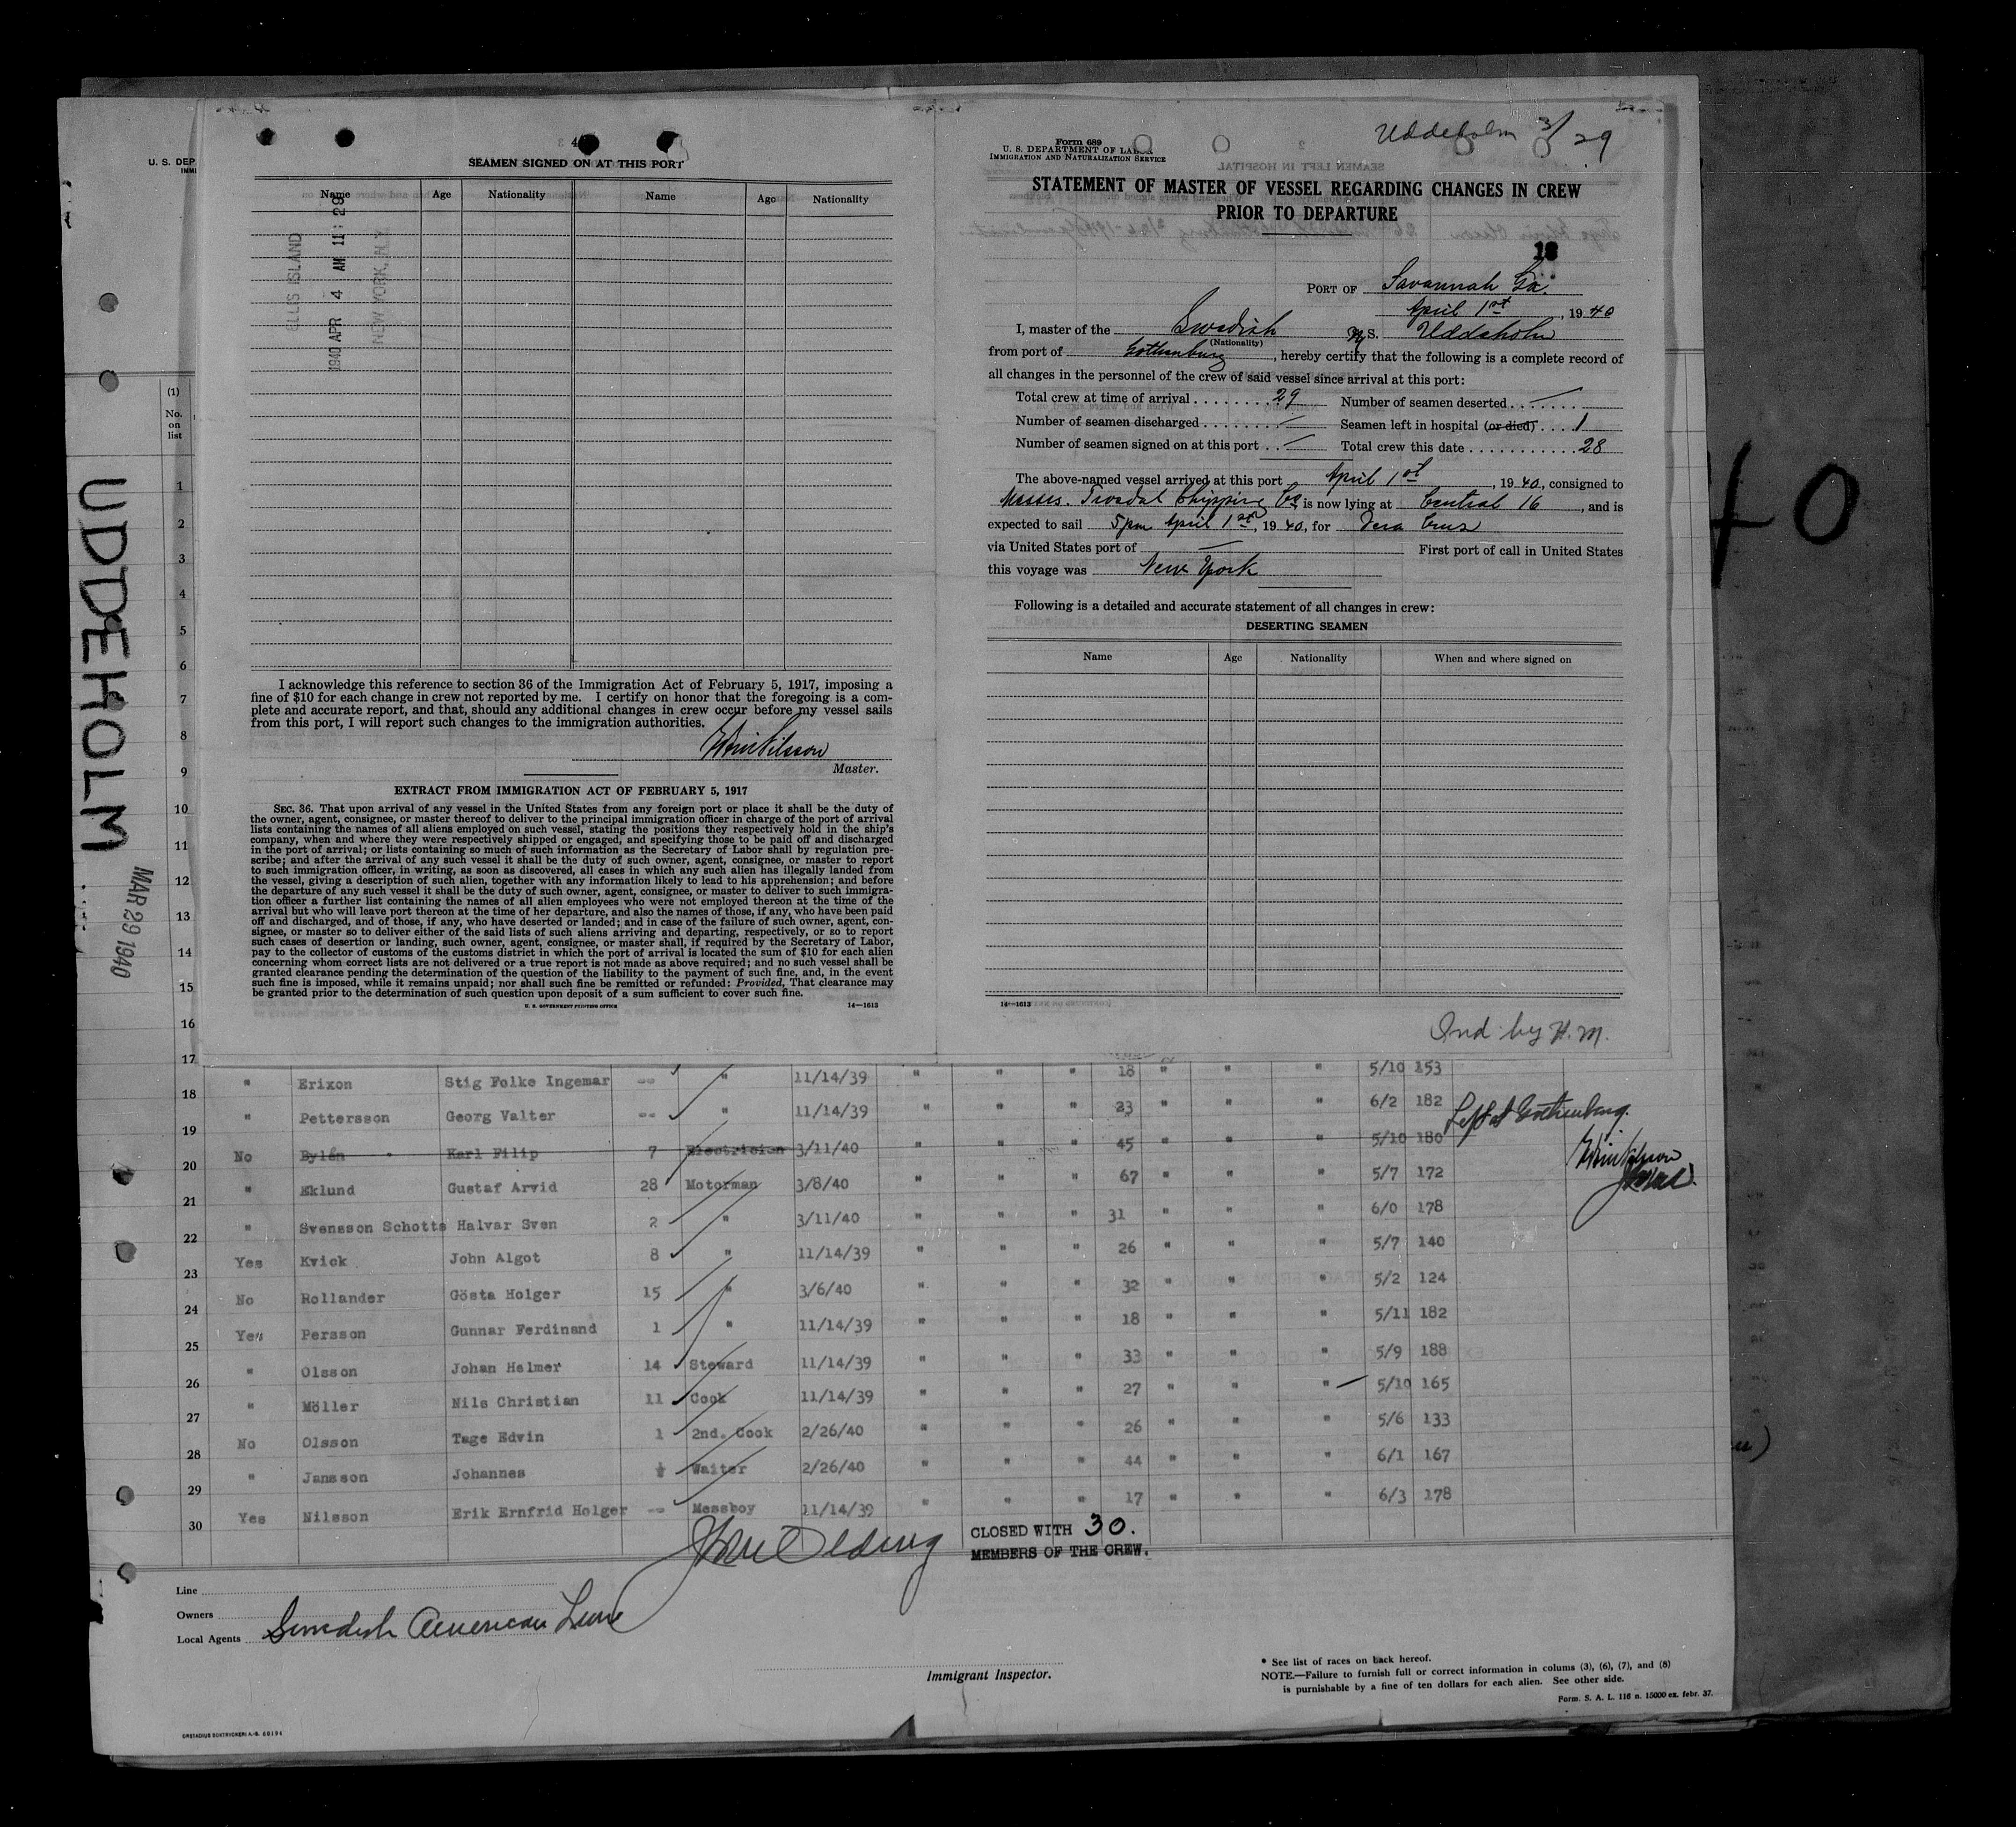 UDDEHOLM
MAR 29 1940
U. S. DEP
IMMI
(1)
No.
on
list
1
2
3
4
5
6
7
8
9
10
11
12
13
14
15
16
17
4
SEAMEN SIGNED ON AT THIS PORT
Name Age Nationality Name Age Nationality
ELLIS ISLAND
1940 APR 4 AM 11:29
NEW YORK, N.Y.
I acknowledge this reference to section 36 of the Immigration Act of February 5, 1917, imposing a
fine of $10 for each change in crew not reported by me. I certify on honor that the foregoing is a com-
plete and accurate report, and that, should any additional changes in crew occur before my vessel sails
from this port, I will report such changes to the immigration authorities.
Nilsson
Master.
EXTRACT FROM IMMIGRATION ACT OF FEBRUARY 5, 1917
SEC. 36. That upon arrival of any vessel in the United States from any foreign port or place it shall be the duty of
the owner, agent, consignee, or master thereof to deliver to the principal immigration officer in charge of the port of arrival
lists containing the names of all aliens employed on such vessel, stating the positions they respectively hold in the ship's
company, when and where they were respectively shipped or engaged, and specifying those to be paid off and discharged
in the port of arrival; or lists containing so much of such information as the Secretary of Labor shall by regulation pre-
scribe; and after the arrival of any such vessel it shall be the duty of such owner, agent, consignee, or master to report
to such immigration officer, in writing, as soon as discovered, all cases in which any such alien has illegally landed from
the vessel, giving a description of such alien, together with any information likely to lead to his apprehension; and before
the departure of any such vessel it shall be the duty of such owner, agent, consignee, or master to deliver to such immigra-
tion officer a further list containing the names of all alien employees who were not employed thereon at the time of the
arrival but who will leave port thereon at the time of her departure, and also the names of those, if any, who have been paid
off and discharged, and of those, if any, who have deserted or landed; and in case of the failure of such owner, agent, con-
signee, or master so to deliver either of the said lists of such aliens arriving and departing, respectively, or so to report
such cases of desertion or landing, such owner, agent, consignee, or master shall, if required by the Secretary of Labor,
pay to the collector of customs of the customs district in which the port of arrival is located the sum of $10 for each alien
concerning whom correct lists are not delivered or a true report is not made as above required; and no such vessel shall be
granted clearance pending the determination of the question of the liability to the payment of such fine, and, in the event
such fine is imposed, while it remains unpaid; nor shall such fine be remitted or refunded: Provided, That clearance may
be granted prior to the determination of such question upon deposit of a sum sufficient to cover such fine.
U. S. GOVERNMENT PRINTING OFFICE 14—1613
Uddeholm 3/29
Form 689
U. S. DEPARTMENT OF LABOR
IMMIGRATION AND NATURALIZATION SERVICE
STATEMENT OF MASTER OF VESSEL REGARDING CHANGES IN CREW
PRIOR TO DEPARTURE
18
PORT OF Savannah Ga.
April 1st, 1940
I, master of the Swedish M.S. Uddeholm
(Nationality)
from port of Gothenburg, hereby certify that the following is a complete record of
all changes in the personnel of the crew of said vessel since arrival at this port:
Total crew at time of arrival 29 Number of seamen deserted —
Number of seamen discharged — Seamen left in hospital (or died) 1
Number of seamen signed on at this port — Total crew this date 28
The above-named vessel arrived at this port April 1st, 1940, consigned to
Messrs. Shipping Co is now lying at Central 16, and is
expected to sail 5 pm April 1st, 1940, for Vera Cruz
via United States port of — First port of call in United States
this voyage was New York
Following is a detailed and accurate statement of all changes in crew:
DESERTING SEAMEN
Name Age Nationality When and where signed on
14—1613
Ind by H. M.
40
" Erixon Stig Folke Ingemar -- " 11/14/39 " " " 18 " " " 5/10 153
18 " Pettersson Georg Valter -- " 11/14/39 " " " 23 " " " 6/2 182 Left at Gothenburg.
19 No Bylén Karl Filip 7 Electrician 3/11/40 " " " 45 " " " 5/10 180
20 " Eklund Gustaf Arvid 28 Motorman 3/8/40 " " " 67 " " " 5/7 172
21 " Svensson Schotte Halvar Sven 2 " 3/11/40 " " " 31 " " " 6/0 178
22 Yes Kvick John Algot 8 " 11/14/39 " " " 26 " " " 5/7 140
23 No Rollander Gösta Holger 15 " 3/6/40 " " " 32 " " " 5/2 124
24 Yes Persson Gunnar Ferdinand 1 " 11/14/39 " " " 18 " " " 5/11 182
25 " Olsson Johan Helmer 14 Steward 11/14/39 " " " 33 " " " 5/9 188
26 " Möller Nils Christian 11 Cook 11/14/39 " " " 27 " " " 5/10 165
27 No Olsson Tage Edvin 1 2nd. Cook 2/26/40 " " " 26 " " " 5/6 133
28 " Jansson Johannes Waiter 2/26/40 " " " 44 " " " 6/1 167
29 Yes Nilsson Erik Ernfrid Holger -- Messboy 11/14/39 " " " 17 " " " 6/3 178
30
CLOSED WITH 30.
MEMBERS OF THE CREW.
Line
Owners
Local Agents Swedish American Line
Immigrant Inspector.
* See list of races on back hereof.
NOTE.—Failure to furnish full or correct information in colums (3), (6), (7), and (8)
is punishable by a fine of ten dollars for each alien. See other side.
Form. S. A. L. 116 n. 15000 ex. febr. 37.